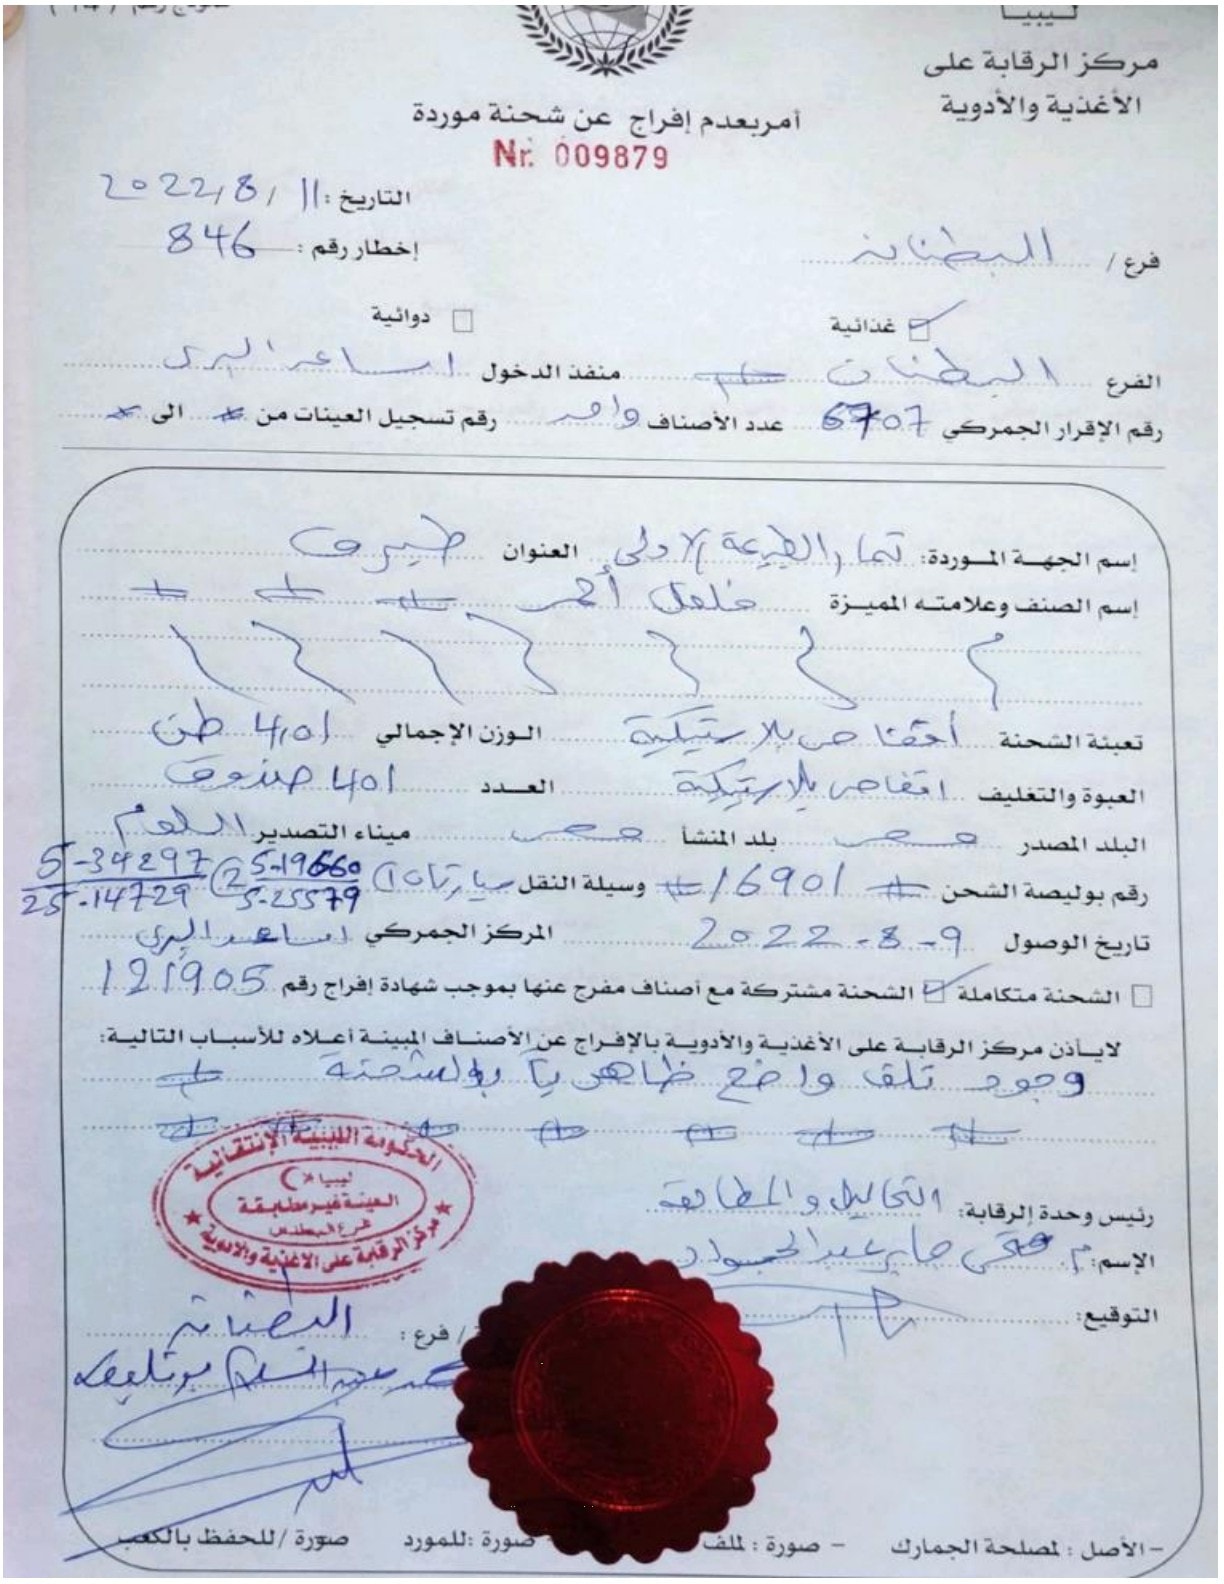 ليبيا
مركز الرقابة على
الأغذية والأدوية
أمر بعدم إفراج عن شحنة موردة
Nr. 009879
التاريخ : 11 / 8 / 2022
إخطار رقم : 846
فرع / البطنان
غذائية
دوائية
الفرع البطنان منفذ الدخول امساعد البرى
رقم الإقرار الجمركي 6707 عدد الأصناف واحد رقم تسجيل العينات من الى
إسم الجهة الموردة: الطبيعة الاولى العنوان طبرق
إسم الصنف وعلامته المميزة فلفل أحمر
تعبئة الشحنة أقفاص بلاستيكية الوزن الإجمالي 4,01 طن
العبوة والتغليف اقفاص بلاستيكية العدد 401 صندوق
البلد المصدر مصر بلد المنشأ مصر ميناء التصدير السلوم
رقم بوليصة الشحن 16901 وسيلة النقل 1 5-19660 2 5-34297
5-25579 25-14729
تاريخ الوصول 9-8-2022 المركز الجمركي امساعد البرى
الشحنة متكاملة الشحنة مشتركة مع أصناف مفرج عنها بموجب شهادة إفراج رقم 121905
لايأذن مركز الرقابة على الأغذية والأدوية بالإفراج عن الأصناف المبينة أعلاه للأسباب التالية:
وجود تلف واضح ظاهرياً بالشحنة
الحكومة الليبية الإنتقالية
ليبيا
العينة غير مطابقة
فرع البطنان
مركز الرقابة على الاغذية والادوية
رئيس وحدة الرقابة: التحاليل والمطابقة
الإسم: م. فتحي جابر عبدالجواد
التوقيع:
/ فرع : البطنان
عبد السلام
-الأصل : لمصلحة الجمارك - صورة : لملف - صورة :للمورد صورة /للحفظ بالكعب